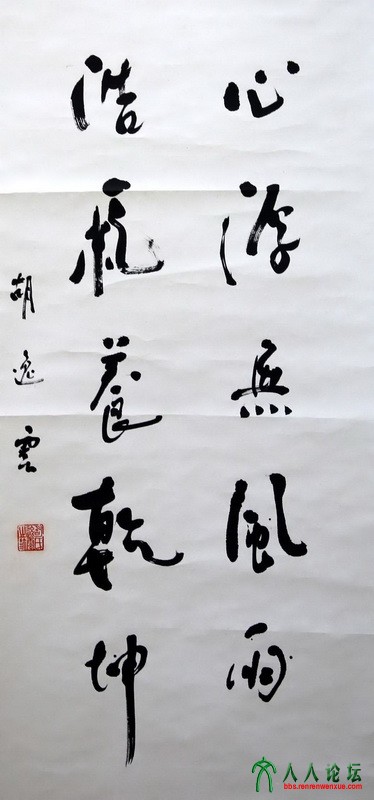 心無風雨
浩氣養乾坤
胡逸雲
人人论坛
bbs.renrenwenxue.com